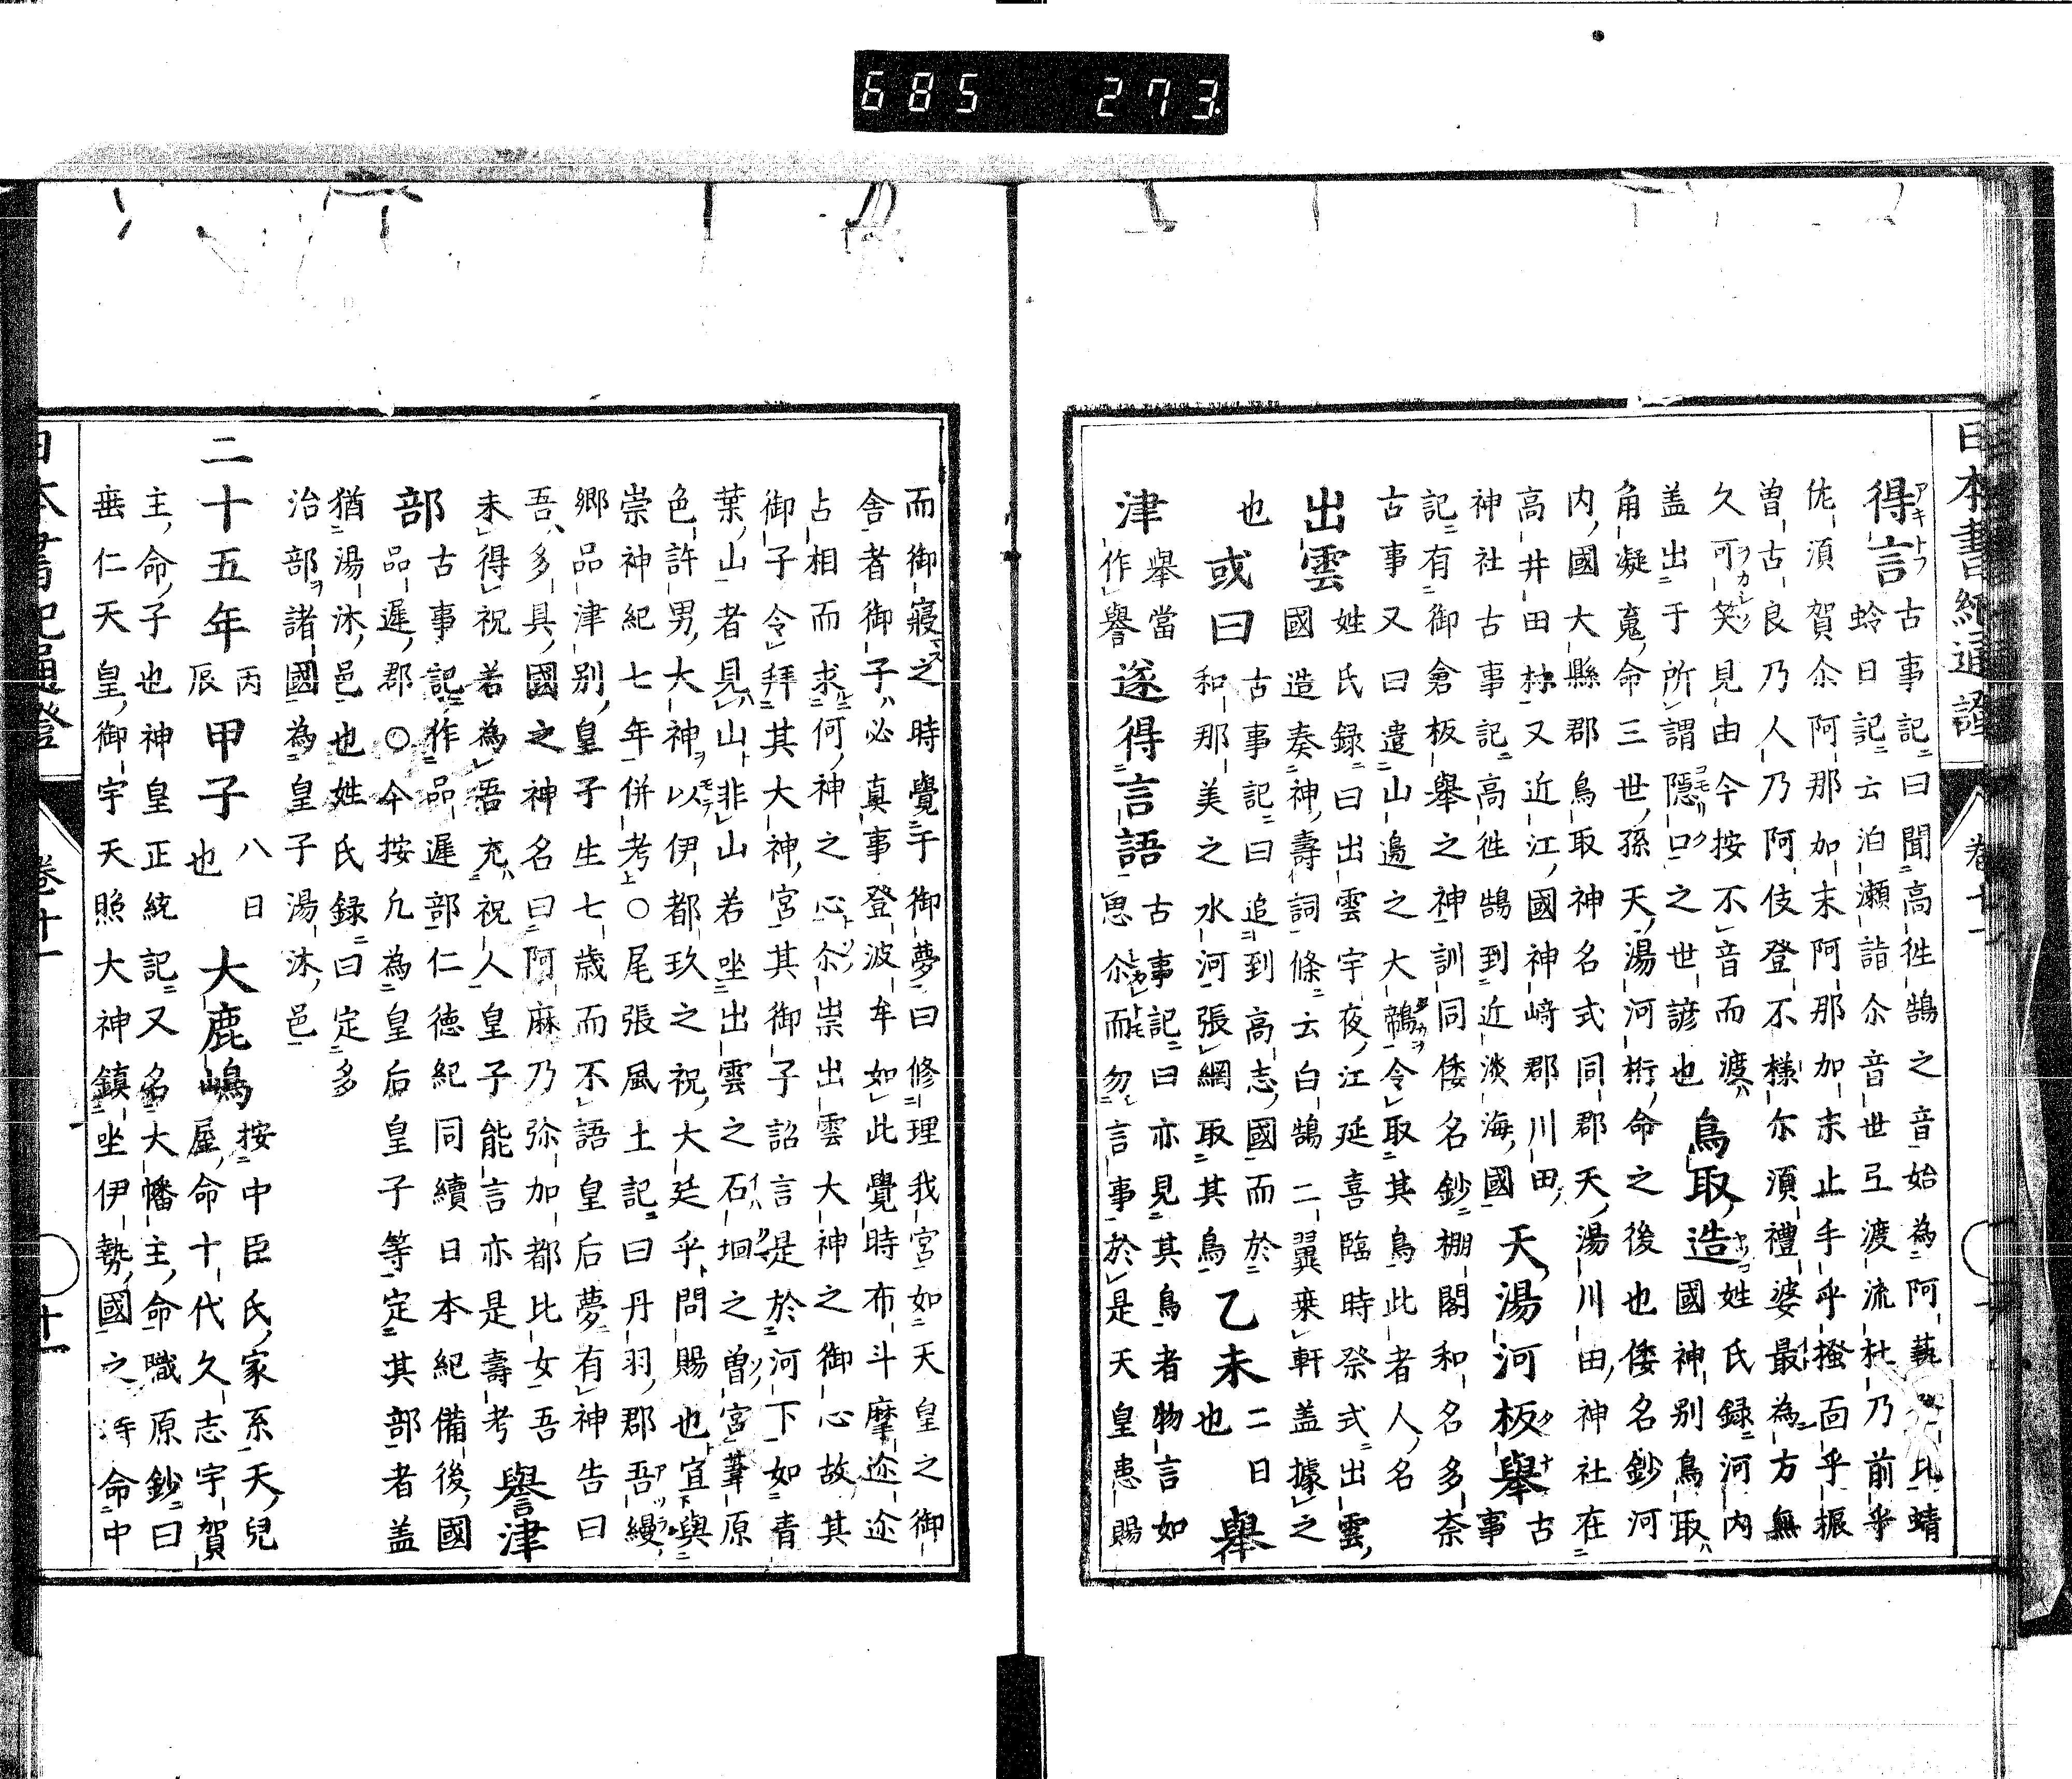 685 273
日本書紀通證 卷十一 十
得言 古事記曰聞高往鵠之音始為阿藝比蜻
蛉日記云泊瀬詣尒音世亙渡流杜乃前乎
佐須賀尒阿那加末阿那加末止手乎搔面乎振
曽古良乃人乃阿伎登不様尓須禮婆最為方無
久可笑見由今按不音而渡 鳥取造 姓氏録河内
國神別鳥取
盖出于所謂隱口之世諺也
角凝蒐命三世孫天湯河桁命之後也倭名鈔河
内國大縣郡鳥取神名式同郡天湯川田神社在
高井田村又近江國神﨑郡川田 天湯河板舉 古
事
神社古事記高往鵠到近淡海國
記有御倉板舉之神訓同倭名鈔棚閣和名多奈
古事又曰遣山邉之大鶙令取其鳥此者人名
出雲 姓氏録曰出雲宇夜江延喜臨時祭式出雲
國造奏神壽詞條云白鵠二翼乗軒盖據之
也 或曰 古事記曰追到高志國而於
和那美之水河張網取其鳥 乙未 二日
也 舉
津 舉當
作譽 遂得言語 古事記曰亦見其鳥者物言如
思尒而勿言事於是天皇患賜
而御寢之時覺于御夢曰修理我宮如天皇之御
舎者御子必真事登波牟如此覺時布斗摩迩迩
占相而求何神之心尒祟出雲大神之御心故其
御子令拜其大神宮其御子詔言是於河下如青
葉山者見山非山若坐出雲之石𡇃之曽宮葦原
色許男大神以伊都玖之祝大廷乎問賜也宜與
崇神紀七年併考○尾張風土記曰丹羽郡吾縵
郷品津別皇子生七歳而不語皇后夢有神告曰
吾多具國之神名曰阿麻乃弥加都比女吾
未得祝若為吾充祝人皇子能言亦是壽考 譽津
部 古事記作品遲部仁徳紀同續日本紀備後國
品遲郡○今按凢為皇后皇子等定其部者盖
猶湯沐邑也姓氏録曰定多
治部諸國為皇子湯沐邑
二十五年 丙
辰 甲子 八日
也 大鹿嶋 按中臣氏家系天兒
屋命十代久志宇賀
主命子也神皇正統記又名大幡主命職原鈔曰
垂仁天皇御宇天照大神鎮坐伊勢國之時命中
日本書紀通證 卷十一 十一